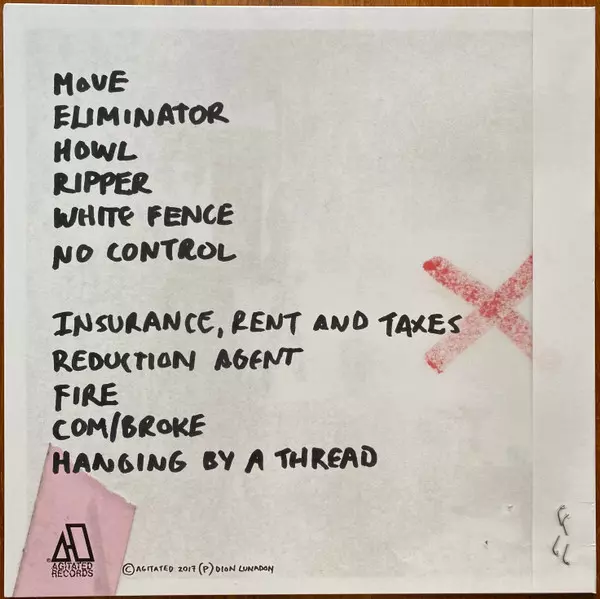 MOVE
ELIMINATOR
HOWL
RIPPER
WHITE FENCE
NO CONTROL
INSURANCE, RENT AND TAXES
REDUCTION AGENT
FIRE
COM/BROKE
HANGING BY A THREAD
AGITATED
RECORDS
©AGITATED 2017 (P) DION LUNADON